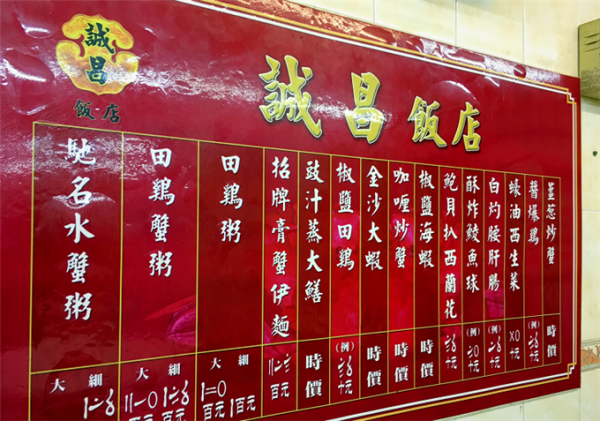 誠昌
飯店
誠昌飯店
薑葱炒蟹
時價
醬爆鷄
蠔油西生菜
白灼腰肝腸
酥炸鯪魚球
鮑貝扒西蘭花
椒鹽海蝦
時價
咖喱炒蟹
時價
金沙大蝦
時價
椒鹽田鷄
豉汁蒸大鱔
時價
招牌膏蟹伊麵
田鷄粥
大 細
田鷄蟹粥
大 細
馳名水蟹粥
大 細